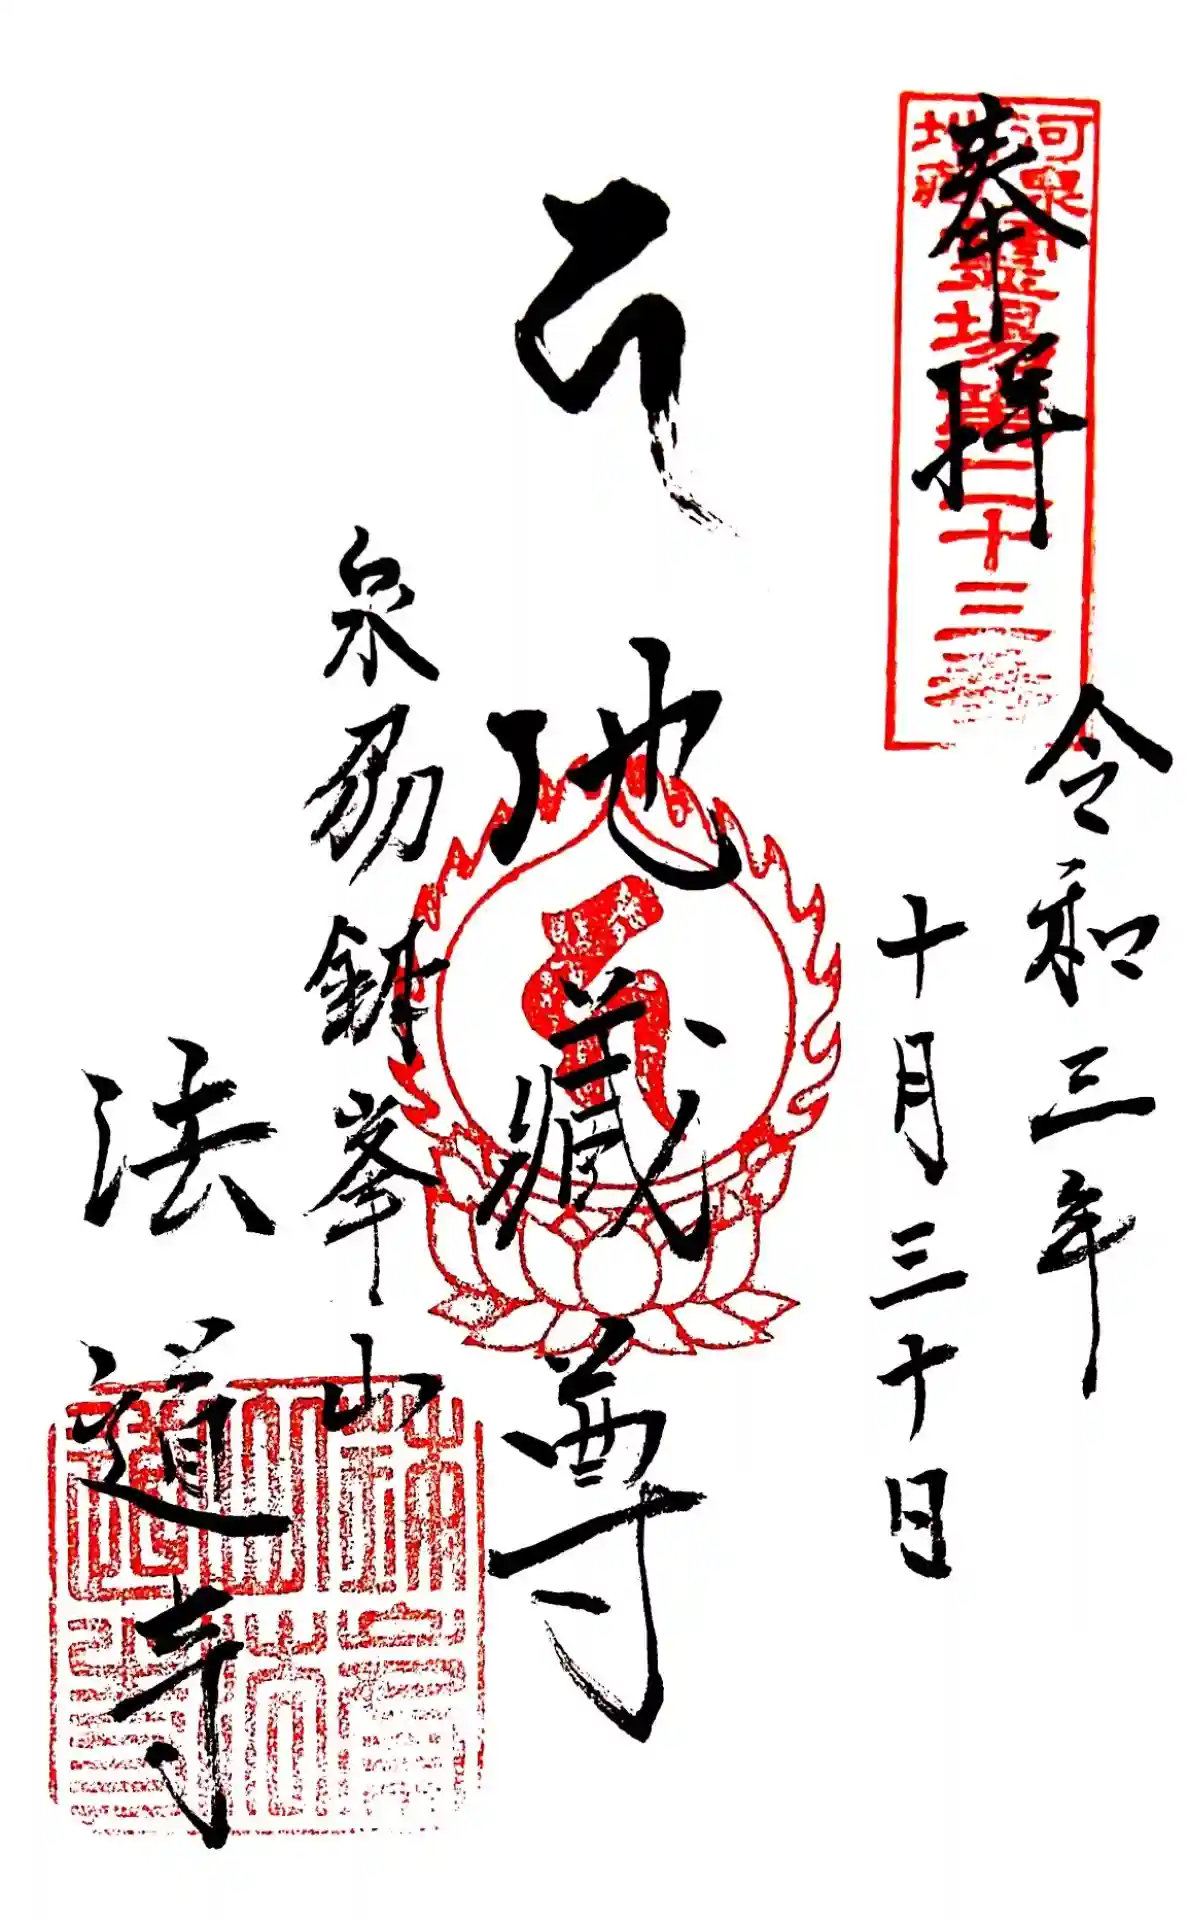 奉拝
河泉
地蔵
靈場第二十三番
令和三年
十月三十日
地藏尊
泉刕鉢峯山
法道寺